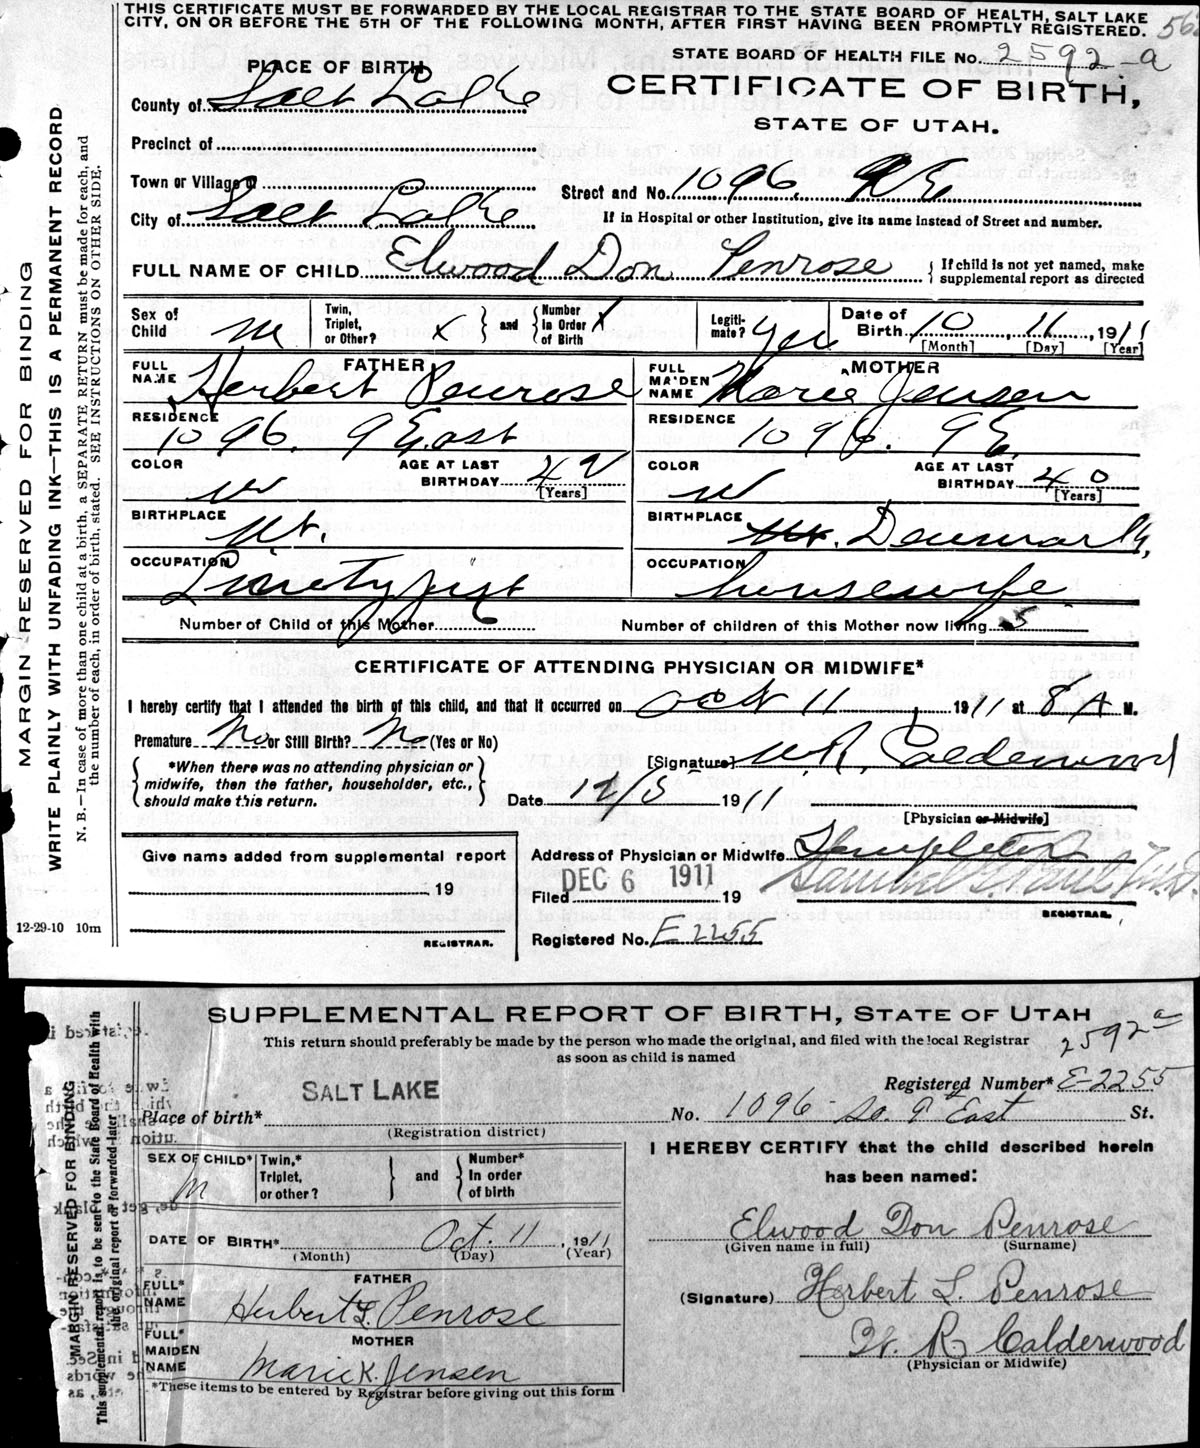 THIS CERTIFICATE MUST BE FORWARDED BY THE LOCAL REGISTRAR TO THE STATE BOARD OF HEALTH, SALT LAKE
CITY, ON OR BEFORE THE 5TH OF THE FOLLOWING MONTH, AFTER FIRST HAVING BEEN PROMPTLY REGISTERED.
STATE BOARD OF HEALTH FILE No. 2592-a
PLACE OF BIRTH
CERTIFICATE OF BIRTH,
STATE OF UTAH.
County of Salt Lake
Precinct of
Town or Village of
Street and No. 1096 9 E
City of Salt Lake
If in Hospital or other Institution, give its name instead of Street and number.
FULL NAME OF CHILD Elwood Don Penrose { If child is not yet named, make
supplemental report as directed
Sex of Child m
Twin, Triplet, or Other? x } and { Number in Order of Birth
Legitimate? yes
Date of Birth 10 11, 1911
[Month] [Day] [Year]
FATHER
FULL NAME Herbert Penrose
MOTHER
FULL MAIDEN NAME Marie Jensen
RESIDENCE 1096. 9 East
RESIDENCE 1096. 9 E.
COLOR w
AGE AT LAST BIRTHDAY 42 [Years]
COLOR w
AGE AT LAST BIRTHDAY 40 [Years]
BIRTHPLACE Ut.
BIRTHPLACE Ut. Denmark,
OCCUPATION
OCCUPATION housewife
Number of Child of this Mother 6
Number of children of this Mother now living 5
CERTIFICATE OF ATTENDING PHYSICIAN OR MIDWIFE*
I hereby certify that I attended the birth of this child, and that it occurred on Oct 11, 1911 at 8 A M.
Premature No or Still Birth? No (Yes or No)
{ *When there was no attending physician or
midwife, then the father, householder, etc.,
should make this return. }
[Signature] W.R. Calderwood
Date 12/5 1911
[Physician or Midwife]
Give name added from supplemental report
, 19
REGISTRAR.
Address of Physician or Midwife Templeton
Filed DEC 6 1911 19
Samuel G. Paul M.D.
REGISTRAR.
Registered No. E 2255
MARGIN RESERVED FOR BINDING
WRITE PLAINLY WITH UNFADING INK—THIS IS A PERMANENT RECORD
N. B.—In case of more than one child at a birth, a SEPARATE RETURN must be made for each, and
the number of each, in order of birth, stated. SEE INSTRUCTIONS ON OTHER SIDE.
12-29-10 10m
SUPPLEMENTAL REPORT OF BIRTH, STATE OF UTAH
This return should preferably be made by the person who made the original, and filed with the local Registrar
as soon as child is named
2592 a
SALT LAKE
Registered Number* E-2255
Place of birth*
(Registration district)
No. 1096 So. 9th East St.
SEX OF CHILD* M
Twin,* Triplet, or other? } and { Number* In order of birth
I HEREBY CERTIFY that the child described herein
has been named:
DATE OF BIRTH* Oct. 11, 1911
(Month) (Day) (Year)
Elwood Don Penrose
(Given name in full) (Surname)
FATHER
FULL* NAME Herbert L. Penrose
(Signature) Herbert L. Penrose
MOTHER
FULL* MAIDEN NAME Marie K. Jensen
W. R. Calderwood
(Physician or Midwife)
*These items to be entered by Registrar before giving out this form
MARGIN RESERVED FOR BINDING
This supplemental report is to be sent to the State Board of Health with
the original report or forwarded later